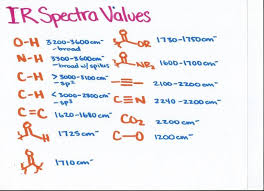 IR Spectra Values
O-H 3200-3600cm⁻¹
-broad
N-H 3300-3600cm⁻¹
-broad w/ spikes
C-H > 3000-3100cm⁻¹
-sp²
C-H < 3000-2800cm⁻¹
-sp³
C=C 1620-1680cm⁻¹
H 1725cm⁻¹
1710cm⁻¹
OR 1730-1750cm⁻¹
NR₂ 1600-1700cm⁻¹
2100-2200cm⁻¹
C≡N 2210-2200cm⁻¹
CO₂ 2200cm⁻¹
C-O 1200cm⁻¹